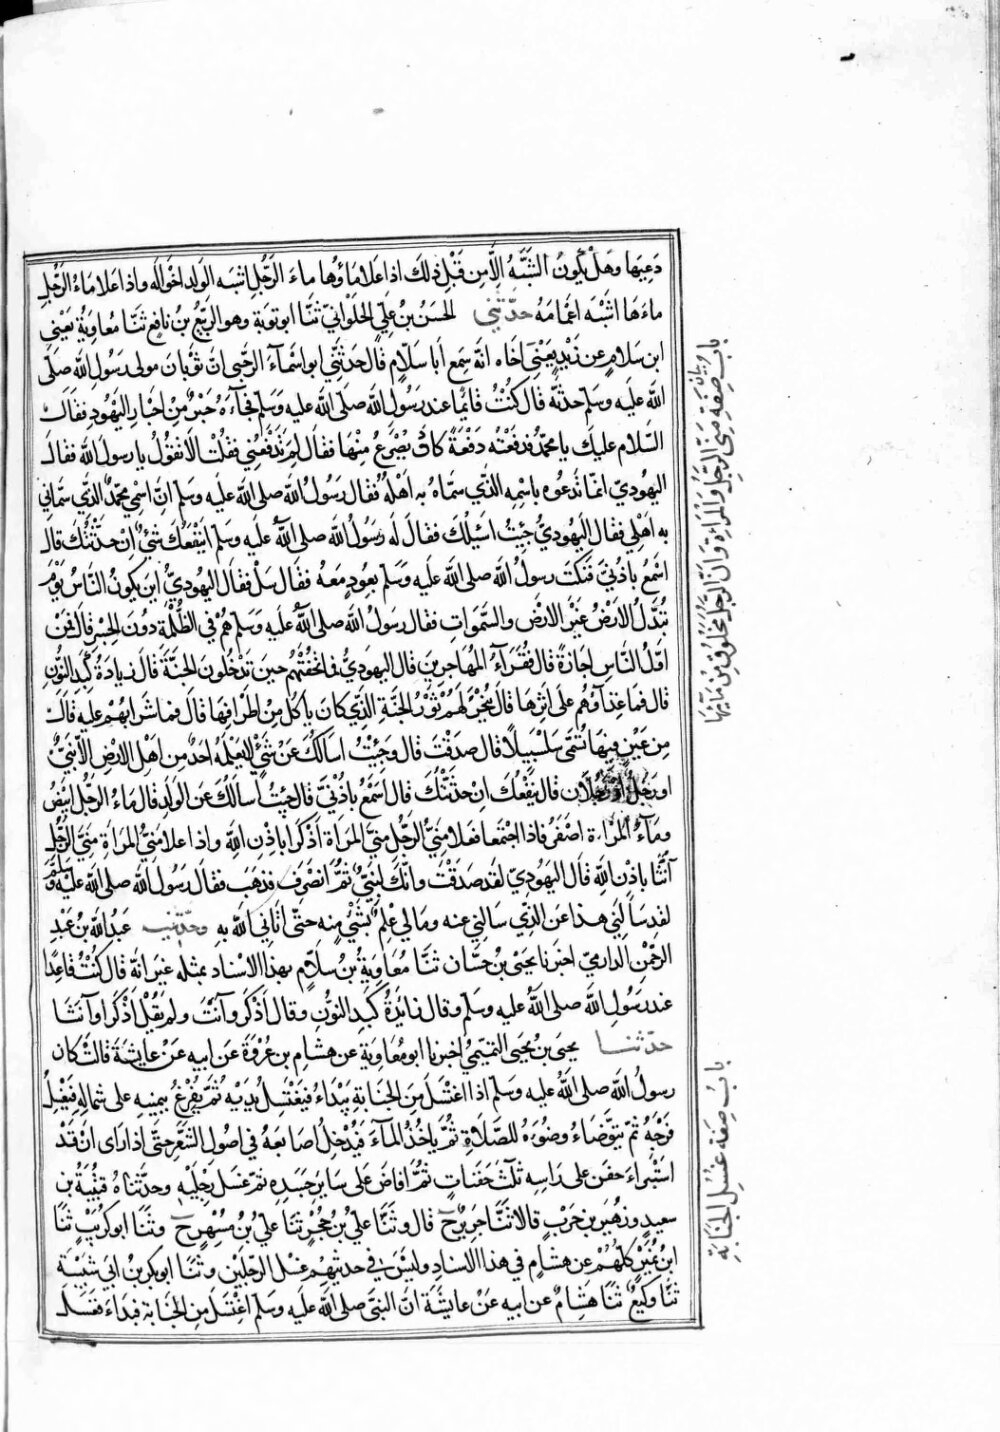 دَعِيهَا وهَلْ يكُونُ الشَّبَهُ اِلَّا مِن قِبَلِ ذلكَ اذا عَلا مَاؤُها ماءَ الرَّجُلِ اشبَه الوَلد اخوَالَه واذا عَلا مَاءُ الرَّجُلِ
ماءَهَا اشْبَه اعْمَامَهُ حدّثني الحَسَنُ بن عَلِيّ الحُلْوَانِيُّ ثنا ابو توبَة وهو الرَّبيعُ بن نافِع ثنا مُعاوِيَة يَعْني
ابن سَلام عن زَيْدٍ يَعْنِي اخَاه انّه سَمِع ابَا سَلّامٍ قالَ حَدثَنِي ابو اسْمآءَ الرَّحَبي انّ ثَوْبانَ مولى رَسُولِ الله صَلّى
الله عليه وسَلّم حدثهُ قال كُنْتُ قايمًا عند رَسُولِ الله صَلّى الله عليه وسَلّم فجآءَهُ حَبْرٌ مِنْ احْبَارِ اليَهُودِ فقالَ
السّلام عليكَ يا محمّدُ فدفَعْتُه دَفْعَةً كادَ يُصْرَعُ مِنْهَا فقال لِمَ تَدْفَعُنِي فقلْتُ الَا تقُولُ يا رسولَ الله فقالَ
اليهُودِيّ انمّا نَدعُوه باسْمِهِ الَّذي سَمّاهُ به اهْلُهُ فقال رَسُولُ الله صلى الله عليه وسلم انّ اسْمِي محمّدٌ الّذِي سَمّانِي
به اهْلِي فقال اليَهُودِيُّ جِئْتُ اسْئلُكَ فقال لَه رَسُولُ الله صلى الله عليه وسَلّم اينفَعُكَ شَيْءٌ اِنْ حدّثْتُكَ قالَ
اسْمَع باذُنَيَّ فنكَتَ رسولُ الله صلى الله عليه وسَلّم بعُودٍ مَعَهُ فقال سَلْ فقال اليهودِيُّ اين يكونُ النّاسُ يَوْمَ
تُبَدَّلُ الارْضُ غيْرَ الارضِ والسَّمواتِ فقال رسُولُ الله صلى الله عليه وسَلّم هُمْ في الظُّلْمَة دُونَ الجِسْرِ قال فمَنْ
اوّلُ النّاسِ اجازَةً قال فُقَرآءُ المُهَاجِرِينَ قال اليهودِيُّ فما تُحْفتُهُم حِينَ يَدْخُلُون الجنَّة قالَ زيادَةُ كَبِدِ النُّونِ
قال فما غِذَآؤهُم على اثرِهَا قالَ يُنْحَرُ لَهُمْ ثَوْرُ الجنّةِ الَّذِي كانَ يأكلُ مِنْ اطْرَافِهَا قالَ فما شرابهُم عليه قالَ
مِن عَيْنٍ فيهَا تُسَمّى سَلْسَبِيلاً قال صَدَقْتَ قال وجِئْتُ اسالُكَ عَنْ شَيْءٍ لا يَعْلَمُهُ احَدٌ مِن اهْلِ الارْضِ اِلّا نَبِيٌّ
او رَجُلٌ اوْ رَجُلَان قال يَنْفَعُكَ انْ حدّثتُكَ قال اسْمَعُ باذُنَيَّ قال جئتُ اسالُكَ عن الولدِ قال مَاءُ الرَّجُلِ ابيَضُ
ومآءُ المَرْاءة اصْفَرُ فاذا اجْتمعَا فعَلا مَنِيُّ الرَّجُلِ مَنِيَّ المَرَاةِ اَذْكَرا باِذْنِ الله واذا عَلا مَنِيُّ المَرَاةِ مَنِيَّ الرَّجُلِ
آنَثَا باذْنِ الله قالَ اليَهُودِيّ لقَد صَدَقْتَ وانّكَ لنَبِيٌّ ثمّ انصَرَفَ فذهَبَ فقال رَسُول الله صلى الله عليه وسلم
لقد سَالَنِي هذا عَن الذِّي سَالَنِي عنه ومَا لي عِلْمٌ بشَيْءٍ منه حتّى اتاني الله به وحدّثنيه عبدُ الله بن عَبْدِ
الرّحمٰنِ الدارميّ اخبَرنا يحيَى بن حَسّان ثنا مُعَاوِيَةُ بن سَلَامٍ بهذا الاسْناد بمثله غيرَ انّه قال كنتُ قاعِدًا
عند رَسُولِ الله صلى الله عليه وسَلّم وقال زايدَةُ كَبِدِ النُّونِ وقال اَذْكَر وآنَثَ ولم يَقُل اَذْكَرا وآنَثَا
حدّثنا يحيَى بن يَحيَى التَّميمِيُّ اخبرنا ابو مُعَاويَة عن هِشَامِ بن عُرْوَةَ عن ابيه عَنْ عايشَةَ قالتْ كانَ
رسولُ الله صلى الله عليه وسَلّم اذا اغتسَلَ مِنَ الجَنابَةِ يَبْدَاءُ فيَغْسِلُ يَدَيْهِ ثمّ يُفْرِغُ بيمينِهِ على شمالِهِ فيَغْسِلُ
فرْجَهُ ثمّ يتوَضّاءُ وضُوءَهُ للصَّلَاةِ ثمّ ياخُذُ المآءَ فيُدْخِلُ اصَابِعَهُ في اصُولِ الشَّعَرِ حتّى اذا رَاى ان قدْ
استَبْراءَ حفَن على رَاسِهِ ثلَاثَ حَفَنَاتٍ ثمُّ افَاضَ عَلى سَايرِ جَسَدِه ثمّ غسَل رِجْلَيْهِ وحدّثناهُ قُتَيْبَةُ بن
سعِيدٍ وزهَيرُ بن حَرْبٍ قالا ثنَا جَرِيرٌ ح قال وثنَا عَلِيُّ بْنُ حُجْرٍ ثنا علِيُّ بْنُ مُسْهِرٍ ح وثنا ابو كريْبٍ ثنا
ابنُ نُمَيْرٍ كلُّهُمْ عن هشامٍ في هذا الاسْنادِ وليسَ في حديثِهِمْ غسْل الرِجلَيْن وثنا ابو بكر بنُ ابي شَيْبَة
ثنا وكيعٌ ثنا هشَامٌ عن ابيه عَنْ عايشَةَ انّ النبيَّ صلى الله عليه وسَلّم اغتسَلَ مِن الجنابةِ فبدَاءَ فغسَلَ
باب بيان صفة مني الرّجل والمراة وانّ الولد مخلوق من مائهما
باب صفة غسل الجنابة